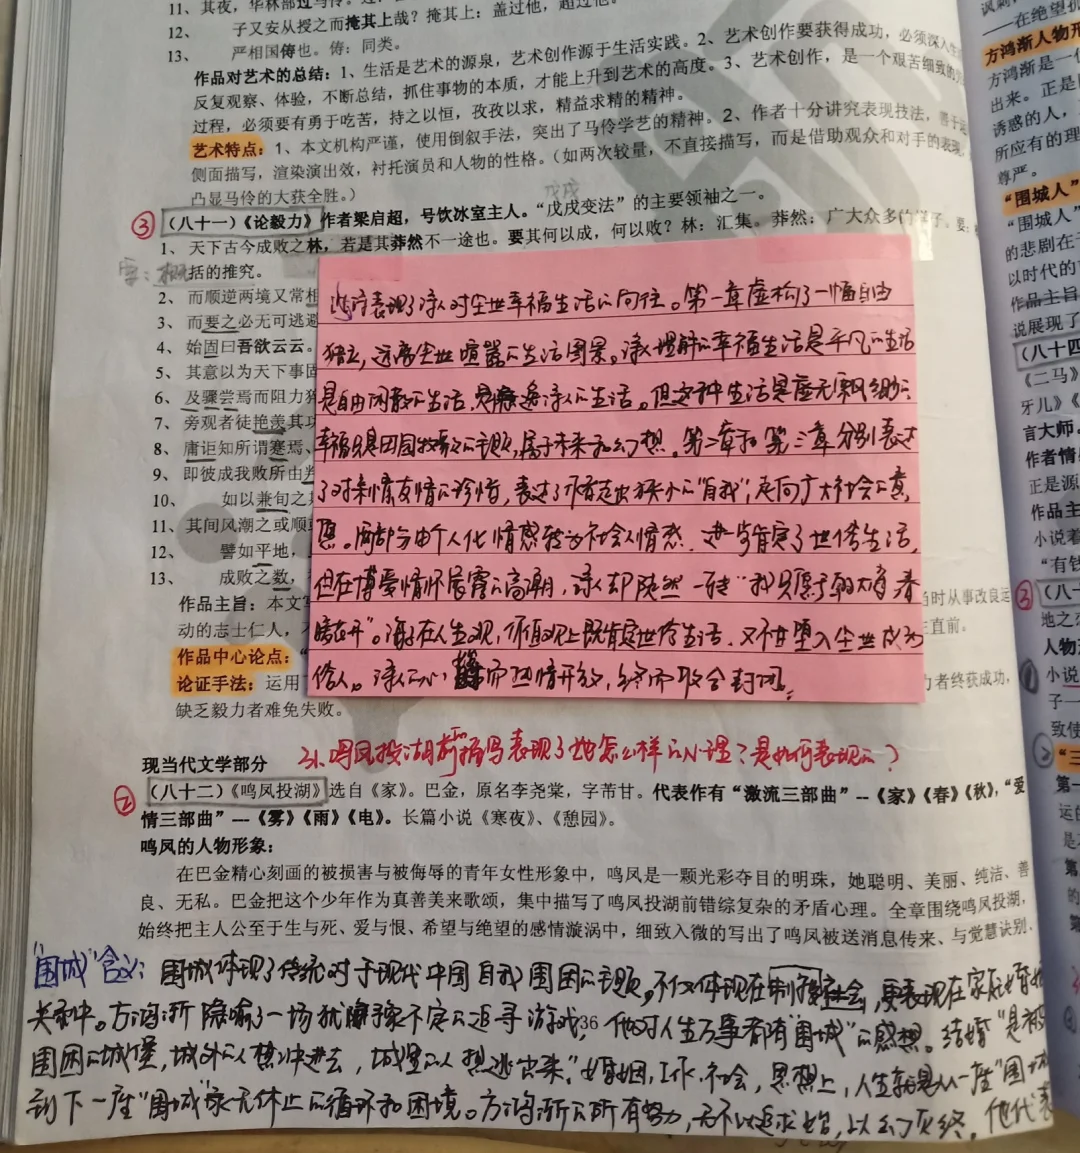 11、其夜，华林部过马伶。
12、 子又安从授之而掩其上哉？掩其上：盖过他，超过他。
13、 严相国俦也。俦：同类。
作品对艺术的总结：1、生活是艺术的源泉，艺术创作源于生活实践。2、艺术创作要获得成功，必须深入
反复观察、体验，不断总结，抓住事物的本质，才能上升到艺术的高度。3、艺术创作，是一个艰苦细致的
过程，必须要有勇于吃苦，持之以恒，孜孜以求，精益求精的精神。
艺术特点：1、本文机构严谨，使用倒叙手法，突出了马伶学艺的精神。2、作者十分讲究表现技法，善于
侧面描写，渲染演出效，衬托演员和人物的性格。（如两次较量，不直接描写，而是借助观众和对手的表现，
凸显马伶的大获全胜。）
戊戌
③（八十一）《论毅力》作者梁启超，号饮冰室主人。“戊戌变法”的主要领袖之一。
1、 天下古今成败之林，若是其莽然不一途也。要其何以成，何以败？林：汇集。莽然：广大众多的样子。要：
要：概括的推究。
2、 而顺逆两境又常相
3、 而要之必无可逃避
4、 始固曰吾欲云云。
5、 其意以为天下事固
6、 及骤尝焉而阻力猝
7、 旁观者徒艳羡其功
8、 庸讵知所谓蹇焉、
9、 即彼成我败所由判
10、 如以兼旬之
11、 其间风潮之或顺
12、 譬如平地，
13、 成败之数，
作品主旨：本文写 当时从事改良运
动的志士仁人， 直前。
作品中心论点：“
论证手法：运用 力者终获成功，
缺乏毅力者难免失败。
这首表现了诗人对尘世幸福生活的向往。第一章虚构了一幅自由
独立，远离尘世喧嚣的生活图景。诗人理解的幸福生活是平凡的生活
是自由闲散的生活，是浪漫诗人的生活。但这种生活是虚无飘渺的
幸福只是田园牧歌的主题，属于未来和幻想。第二章和第三章分别表达
了对亲情友情的珍惜，表达了作者走出狭小的“自我”，走向广大社会的意
愿。两部分由个人化情感转为社会人情感，进步肯定了世俗生活，
但在博爱情怀展露的高潮，诗人却陡然一转“我只愿面朝大海春
暖花开”。海子在人生观，价值观上既肯定世俗生活，又不甘坠入尘世成为
俗人。诗人的心 而热情开放，终而收合封闭。
现当代文学部分
31、鸣凤投湖前描写表现了她怎么样的心理？是如何表现的？
②（八十二）《鸣凤投湖》选自《家》。巴金，原名李尧棠，字芾甘。代表作有“激流三部曲”--《家》《春》《秋》，“爱
情三部曲”---《雾》《雨》《电》。长篇小说《寒夜》、《憩园》。
鸣凤的人物形象：
在巴金精心刻画的被损害与被侮辱的青年女性形象中，鸣凤是一颗光彩夺目的明珠，她聪明、美丽、纯洁、善
良、无私。巴金把这个少年作为真善美来歌颂，集中描写了鸣凤投湖前错综复杂的矛盾心理。全章围绕鸣凤投湖，
始终把主人公至于生与死、爱与恨、希望与绝望的感情漩涡中，细致入微的写出了鸣凤被送消息传来、与觉慧诀别、
“围城”含义：围城体现了传统对于现代中国自我围困的主题。不仅体现在制度社会，更表现在家庭婚姻
关系中。方鸿渐隐喻了一场犹豫不定的追寻游戏，他对人生万事都有“围城”的感想。结婚“是被
36
围困的城堡，城外的人想冲进去，城里的人想逃出来。”婚姻，工作，社会，思想上，人生就是从一座“围城
到下一座“围城”永无休止的循环和困境。方鸿渐的所有努力，无不以追求始，以幻灭终，他代表
讽刺
——在绝望
方鸿渐人物形
方鸿渐是一
出来。正是
诱惑的人，
所应有的理
尊严。
“围城人”
“围城人”
的悲剧在于
以时代的
作品主旨
说展现了
（八十四
《二马》
牙儿》《
言大师。
作者情
正是源
作品主
小说着
“有钱
③（八十
地之
人物
小说
子—
致使
“三
第一
运的
是
第
的
第